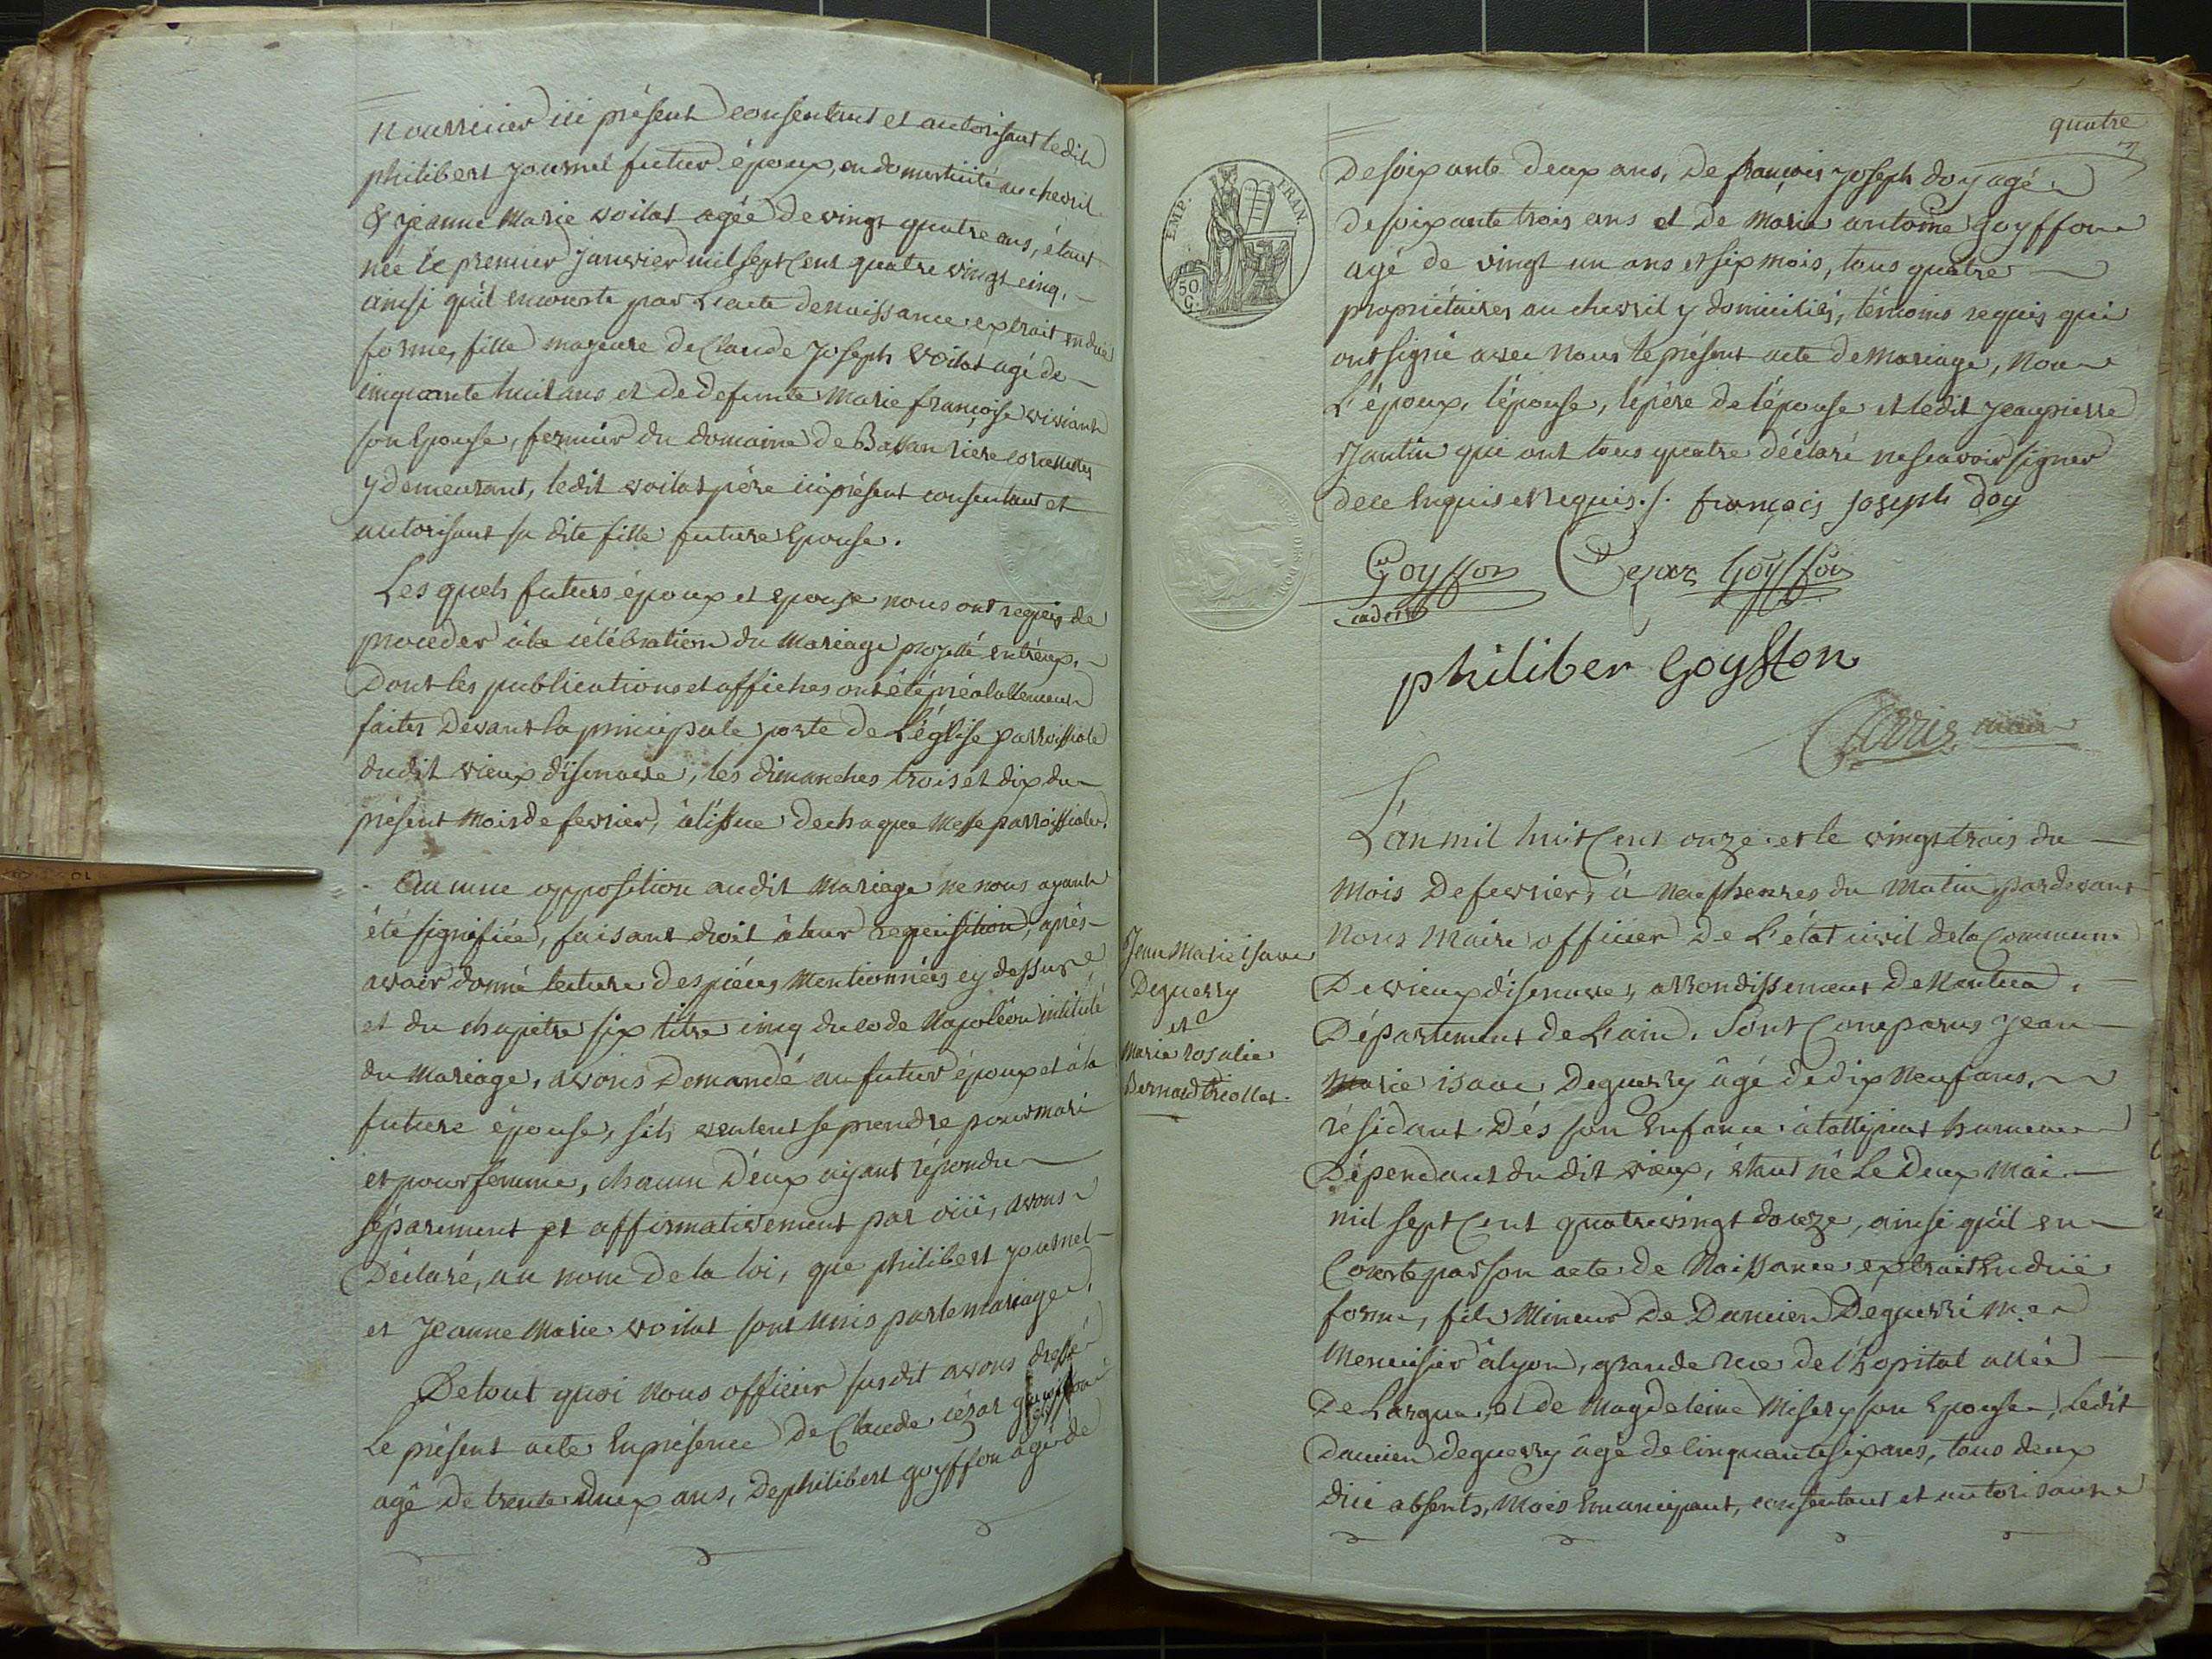 nourricier ici présent consentant et autorisant ledit
philibert journel futur époux, en domesticité au chevril
& jeanne Marie voilat agée de vingt quatre ans, étant
née le premier janvier mil sept Cent quatre vingt cinq,
ainsi qu'il enconste par L'acte de naissance extrait en due
forme, fille majeure de Claude Joseph voilat agé de
cinquante huit ans et de defunte Marie françoise
son Epouse, fermier du domaine de
y demeurant, ledit voilat père ici présent consentant et
autorisant sa dite fille future Epouse.
Les quels futurs époux et epouse nous ont requis de
proceder à la célébration du Mariage projetté entr'eux,
Dont les publications et affiches ont été préalablement
faites Devant la principale porte de L'église parroissiale
dudit vieux d'isenave, les dimanches trois et dix du
présent Mois de fevrier, à l'issue de chaque Messe parroissiale.
Aucune opposition audit Mariage ne nous ayant
été signifiée, faisant droit à leur requisition, après
avoir donné lecture des piéces Mentionnées cy dessus,
et du chapitre six titre cinq du code Napoléon intitulé
du Mariage, avons Demandé au futur époux et à la
future épouse, s'ils veulent se prendre pour mari
et pour femme, chacun D'eux ayant répondu
séparement et affirmativement par oüi, avons
Déclaré, au nom de la loi, que philibert journel
et Jeanne Marie voilat sont unis par le mariage.
De tout quoi nous officier susdit avons dressé
Le présent acte En présence De Claude cézar goyffon
agé De trente deux ans, De philibert goyffon âgé de
quatre
De soixante deux ans, De françois joseph doy agé
de soixante trois ans et de Marie antoine Goyffon
agé de vingt un ans et six mois, tous quatre
propriétaires au chevril y domiciliés, témoins requis qui
ont signé avec Nous le présent acte de Mariage, Non
L'époux, l'épouse, le père de l'épouse et ledit jean pierre
Jantin qui ont tous quatre déclaré ne scavoir signer
de ce Enquis et Requis ./. françois joseph doy
EMP. FRAN.
50 C.
Goyffon Cezar Goÿffon
cadet
philiber Goyffon
maire
L'an mil huit Cent onze et le vingt trois du
Mois De fevrier, à Neuf heures du Matin, pardevant
Nous Maire officier De L'état civil de la Commune
De vieux d'isenave, arrondissement De Nantua,
Département de L'ain, Sont Comparus Jean
Marie isaac Deguerry âgé de dix Neuf ans,
résidant Dés son Enfance à hameau
Dépendant du dit vieux, étant né Le Deux Mai
mil sept Cent quatrevingt douze, ainsi qu'il en
Conste par son acte de Naissance extrait En düe
forme, fils Mineur De Damien Deguerri M.e
Menuisier à lyon, grande rue de l'hopital allée
De Largue, et de Magdeleine Misery son Epouse, Ledit
Damien deguerry âgé de Cinquante six ans, tous deux
d'ici absents, Mais Emancipant, consentant et autorisant
Jean Marie isaac
Deguerry
et
Marie rosalie
Bernard